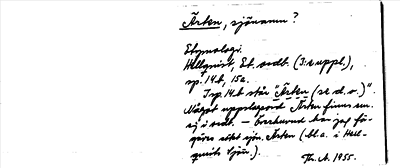 Ärten, sjönamn?
Etymologi.
Hellquist, Et. ordb. (3:e uppl.),
sp. 14b, 15a.
I sp. 14b står "Ärten (se d. o.)".
Något uppslagsord Ärten finns em.
ej i ordb. — Överhuvud har jag för-
gäves sökt sjön. Ärten (bl.a. i Hell-
quists Sjön.).
Th. A. 1955.